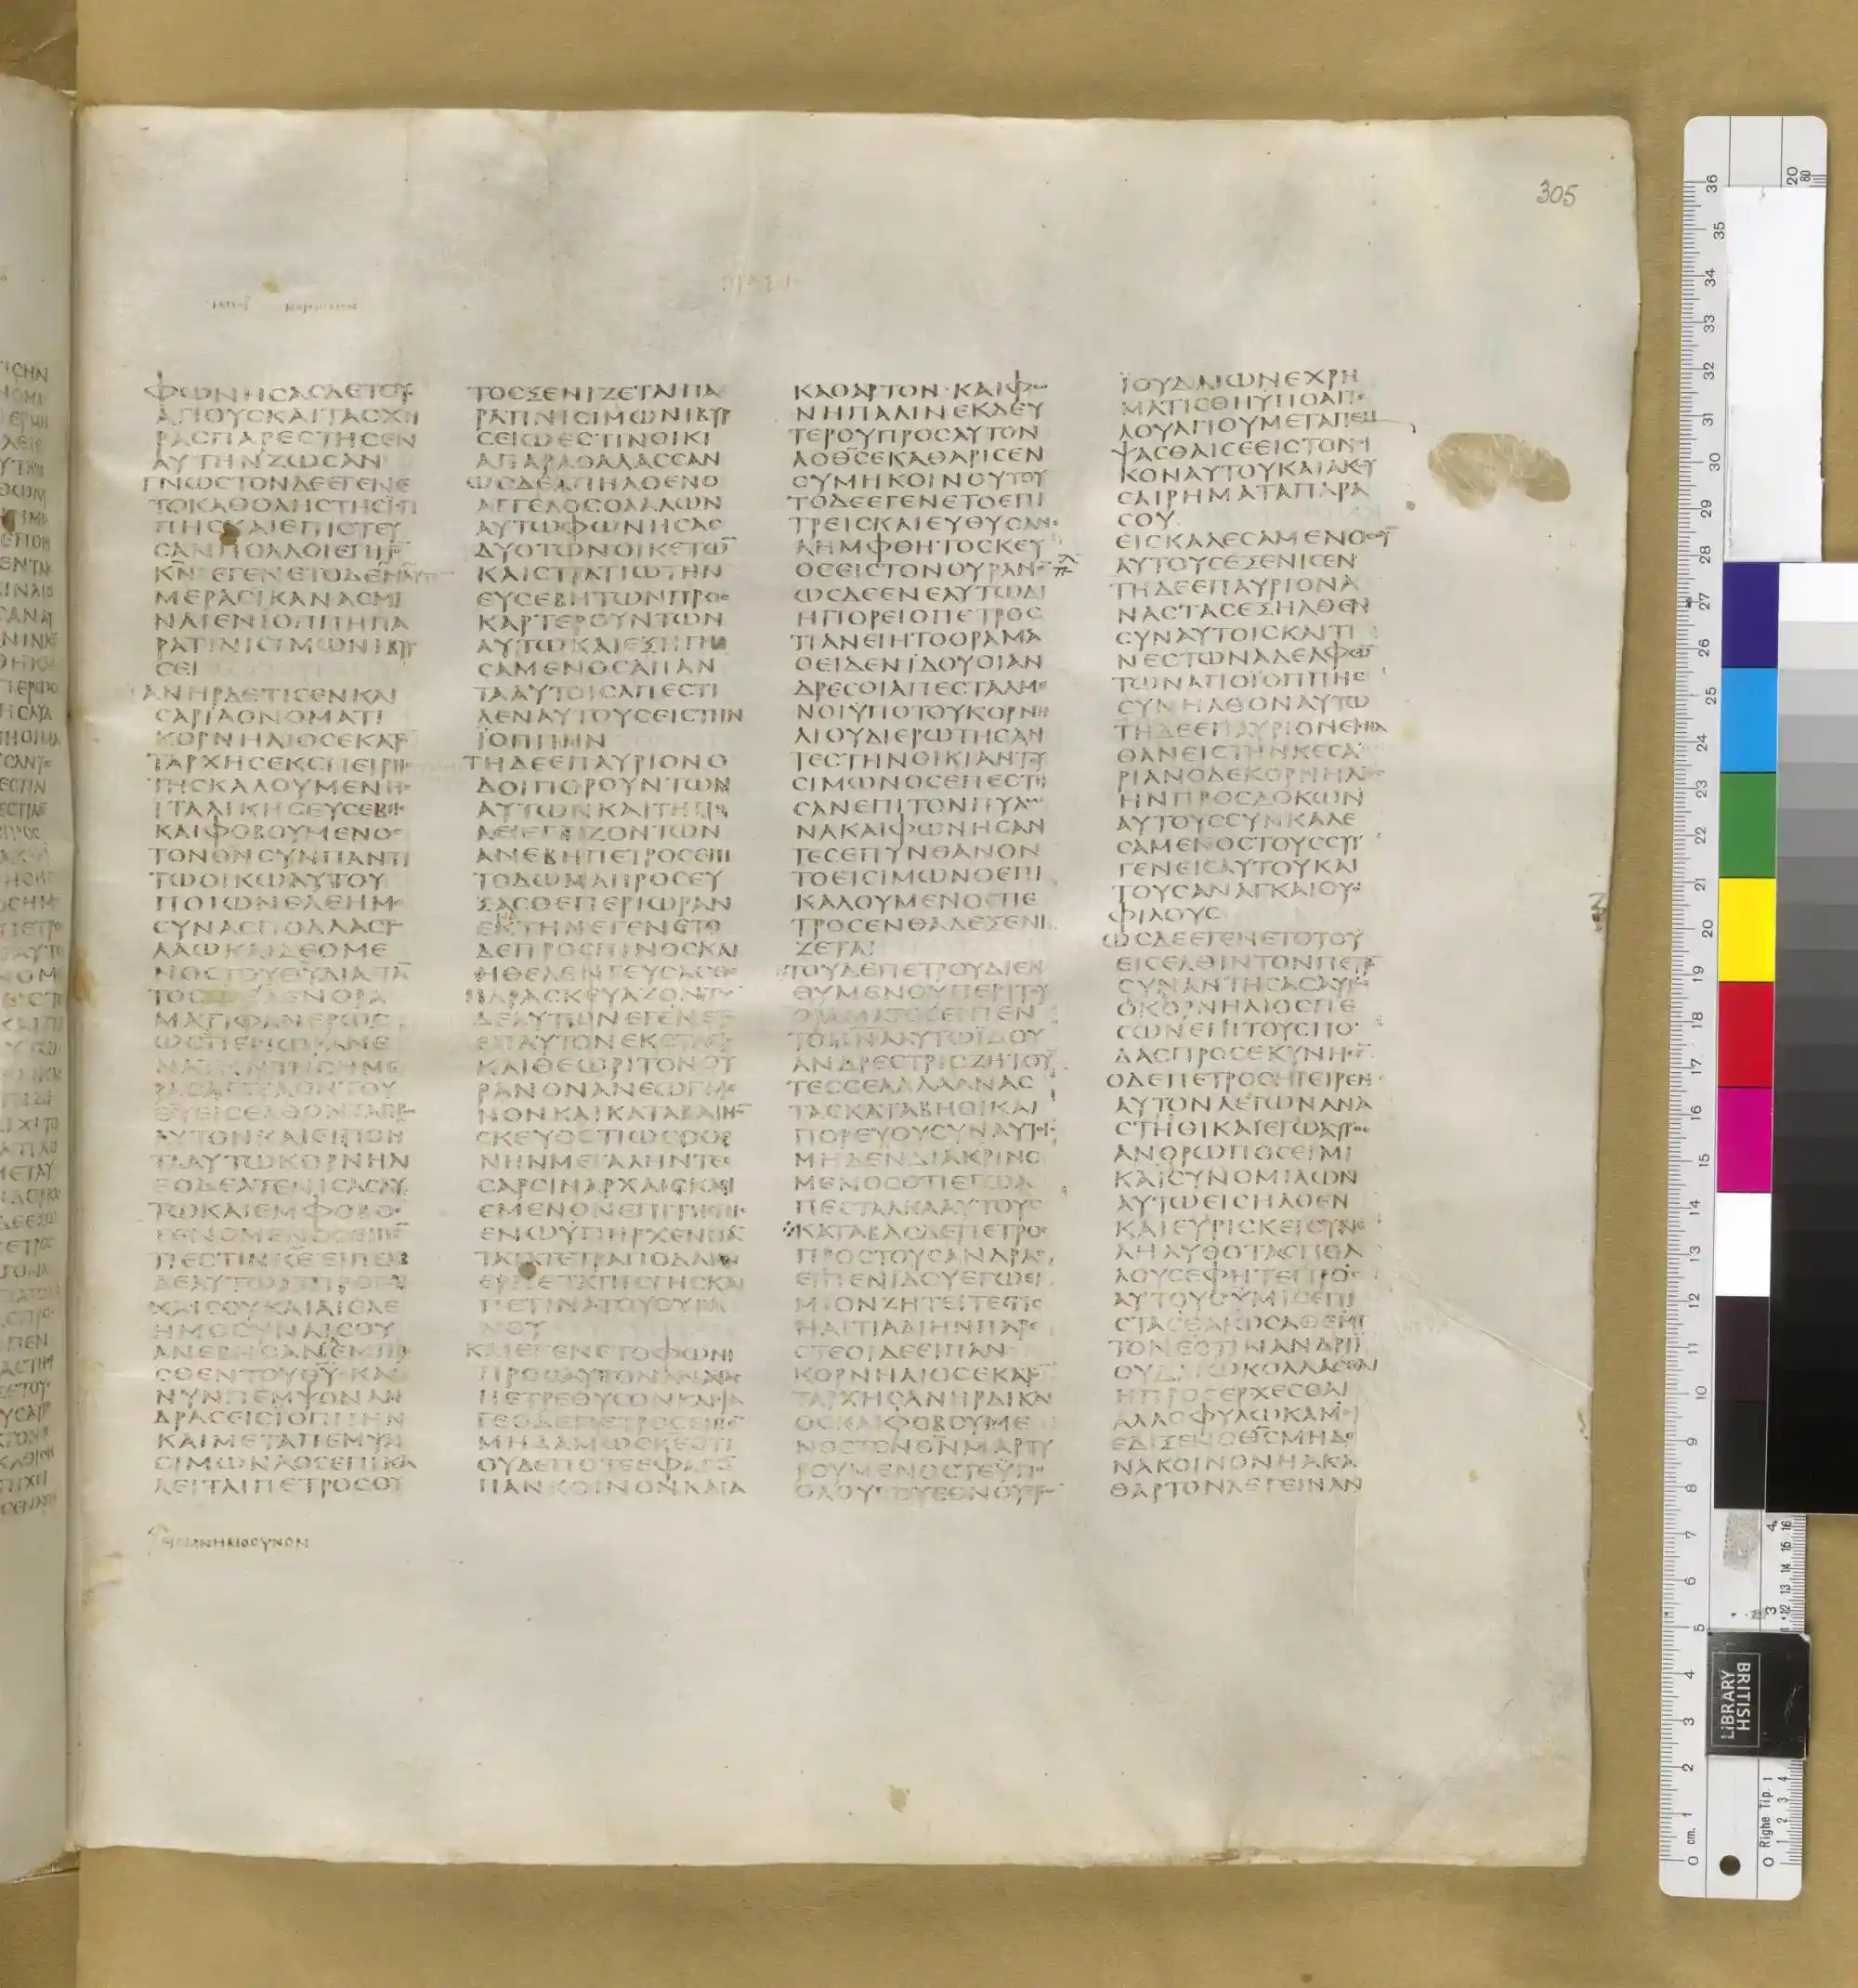 305
ΦΩΝΗϹΑϹΔΕΤΟΥϹ
ΑΓΙΟΥϹΚΑΙΤΑϹΧΗ
ΡΑϹΠΑΡΕϹΤΗϹΕΝ
ΑΥΤΗΝΖΩϹΑΝ
ΓΝΩϹΤΟΝΔΕΕΓΕΝΕ
ΤΟΚΑΘΟΛΗϹΤΗϹΪΟΠ
ΠΗϹΚΑΙΕΠΙϹΤΕΥ
ϹΑΝΠΟΛΛΟΙΕΠΙΤΟ̅
Κ̅Ν̅ ΕΓΕΝΕΤΟΔΕΗ
ΜΕΡΑϹΙΚΑΝΑϹΜΙ
ΝΑΙΕΝΙΟΠΠΗΠΑ
ΡΑΤΙΝΙϹΙΜΩΝΙΒΥΡ
ϹΕΙ
ΑΝΗΡΔΕΤΙϹΕΝΚΑΙ
ϹΑΡΙΑΟΝΟΜΑΤΙ
ΚΟΡΝΗΛΙΟϹΕΚΑΤ̅
ΤΑΡΧΗϹΕΚϹΠΕΙΡΗϹ
ΤΗϹΚΑΛΟΥΜΕΝΗϹ
ΙΤΑΛΙΚΗϹΕΥϹΕΒΗϹ
ΚΑΙΦΟΒΟΥΜΕΝΟϹ
ΤΟΝΘ̅Ν̅ϹΥΝΠΑΝΤΙ
ΤΩΟΙΚΩΑΥΤΟΥ
ΠΟΙΩΝΕΛΕΗΜΟ
ϹΥΝΑϹΠΟΛΛΑϹΤΩ
ΛΑΩΚΑΙΔΕΟΜΕ
ΝΟϹΤΟΥΘ̅Υ̅ΔΙΑΠΑ̅
ΤΟϹ ΕΙΔΕΝΟΡΑ
ΜΑΤΙΦΑΝΕΡΩϹ
ΩϹΠΕΡΙΩΡΑΝΕ
ΝΑΤΗΝΤΗϹΗΜΕ
ΡΑϹΑΓΓΕΛΟΝΤΟΥ
Θ̅Υ̅ΕΙϹΕΛΘΟΝΤΑΠΡΟϹ
ΑΥΤΟΝΚΑΙΕΙΠΟΝ
ΤΑΑΥΤΩΚΟΡΝΗΛΙ
ΕΟΔΕΑΤΕΝΙϹΑϹΑΥ
ΤΩΚΑΙΕΜΦΟΒΟϹ
ΓΕΝΟΜΕΝΟϹΕΙΠΕ̅
ΤΙΕϹΤΙΝΚ̅Ε̅ΕΙΠΕΝ
ΔΕΑΥΤΩΑΙΠΡΟϹΕΥ
ΧΑΙϹΟΥΚΑΙΑΙΕΛΕ
ΗΜΟϹΥΝΑΙϹΟΥ
ΑΝΕΒΗϹΑΝΕΜΠΡΟ
ϹΘΕΝΤΟΥΘ̅Υ̅ ΚΑΙ
ΝΥΝΠΕΜΨΟΝΑΝ
ΔΡΑϹΕΙϹΪΟΠΠΗΝ
ΚΑΙΜΕΤΑΠΕΜΨΑΙ
ϹΙΜΩΝΑΟϹΕΠΙΚΑ
ΛΕΙΤΑΙΠΕΤΡΟϹΟΥ
ΤΟϹΞΕΝΙΖΕΤΑΙΠΑ
ΡΑΤΙΝΙϹΙΜΩΝΙΒΥΡ
ϹΕΙΩΕϹΤΙΝΟΙΚΙ
ΑΠΑΡΑΘΑΛΑϹϹΑΝ
ΩϹΔΕΑΠΗΛΘΕΝΟ
ΑΓΓΕΛΟϹΟΛΑΛΩΝ
ΑΥΤΩΦΩΝΗϹΑϹ
ΔΥΟΤΩΝΟΙΚΕΤΩ̅
ΚΑΙϹΤΡΑΤΙΩΤΗΝ
ΕΥϹΕΒΗΤΩΝΠΡΟϹ
ΚΑΡΤΕΡΟΥΝΤΩΝ
ΑΥΤΩΚΑΙΕΞΗΓΗ
ϹΑΜΕΝΟϹΑΠΑΝ
ΤΑΑΥΤΟΙϹΑΠΕϹΤΙ
ΛΕΝΑΥΤΟΥϹΕΙϹΤΗΝ
ΪΟΠΠΗΝ
ΤΗΔΕΕΠΑΥΡΙΟΝΟ
ΔΟΙΠΟΡΟΥΝΤΩΝ
ΑΥΤΩΝΚΑΙΤΗΠΟ
ΛΕΙΕΓΓΙΖΟΝΤΩΝ
ΑΝΕΒΗΠΕΤΡΟϹΕΠΙ
ΤΟΔΩΜΑΠΡΟϹΕΥ
ΞΑϹΘΕΠΕΡΙΩΡΑΝ
ΕΚΤΗΝΕΓΕΝΕΤΟ
ΔΕΠΡΟϹΠΙΝΟϹΚΑΙ
ΗΘΕΛΕΝΓΕΥϹΑϹΘΕ
ΠΑΡΑϹΚΕΥΑΖΟΝΤΩ̅
ΔΕΑΥΤΩΝΕΓΕΝΕΤΟ
ΕΠΑΥΤΟΝΕΚϹΤΑϹΙϹ
ΚΑΙΘΕΩΡΙΤΟΝΟΥ
ΡΑΝΟΝΑΝΕΩΓΜΕ
ΝΟΝΚΑΙΚΑΤΑΒΑΙΝΟ̅
ϹΚΕΥΟϹΤΙΩϹΟΘΟ
ΝΗΝΜΕΓΑΛΗΝΤΕϹ
ϹΑΡϹΙΝΑΡΧΑΙϹΚΑΘΙ
ΕΜΕΝΟΝΕΠΙΤΗϹΓΗϹ
ΕΝΩΫΠΗΡΧΕΝΠΑ̅
ΤΑΤΑΤΕΤΡΑΠΟΔΑΚΑΙ
ΕΡΠΕΤΑΤΗϹΓΗϹΚΑΙ
ΠΕΤΙΝΑΤΟΥΟΥΡΑ
ΝΟΥ
ΚΑΙΕΓΕΝΕΤΟΦΩΝΗ
ΠΡΟϹΑΥΤΟΝΑΝΑϹΤΑϹ
ΠΕΤΡΕΘΥϹΟΝΚΑΙΦΑ
ΓΕΟΔΕΠΕΤΡΟϹΕΙΠΕ̅
ΜΗΔΑΜΩϹΚ̅Ε̅ΟΤΙ
ΟΥΔΕΠΟΤΕΕΦΑΓΟ̅
ΠΑΝΚΟΙΝΟΝΚΑΙΑ
ΚΑΘΑΡΤΟΝ ΚΑΙΦΩ
ΝΗΠΑΛΙΝΕΚΔΕΥ
ΤΕΡΟΥΠΡΟϹΑΥΤΟΝ
ΑΟΘ̅Ϲ̅ΕΚΑΘΑΡΙϹΕΝ
ϹΥΜΗΚΟΙΝΟΥΤΟΥ
ΤΟΔΕΕΓΕΝΕΤΟΕΠΙ
ΤΡΕΙϹΚΑΙΕΥΘΥϹΑΝΕ
ΛΗΜΦΘΗΤΟϹΚΕΥ
ΟϹΕΙϹΤΟΝΟΥΡΑΝΟ̅
ΩϹΔΕΕΝΕΑΥΤΩΔΙ
ΗΠΟΡΕΙΟΠΕΤΡΟϹ
ΤΙΑΝΕΙΗΤΟΟΡΑΜΑ
ΟΕΙΔΕΝΪΔΟΥΟΙΑΝ
ΔΡΕϹΟΙΑΠΕϹΤΑΛΜΕ
ΝΟΙΫΠΟΤΟΥΚΟΡΝΗ
ΛΙΟΥΔΙΕΡΩΤΗϹΑΝ
ΤΕϹΤΗΝΟΙΚΙΑΝΤΟΥ
ϹΙΜΩΝΟϹΕΠΕϹΤΗ
ϹΑΝΕΠΙΤΟΝΠΥΛΩ
ΝΑΚΑΙΦΩΝΗϹΑΝ
ΤΕϹΕΠΥΝΘΑΝΟΝ
ΤΟΕΙϹΙΜΩΝΟΕΠΙ
ΚΑΛΟΥΜΕΝΟϹΠΕ
ΤΡΟϹΕΝΘΑΔΕΞΕΝΙ
ΖΕΤΑΙ
ΤΟΥΔΕΠΕΤΡΟΥΔΙΕΝ
ΘΥΜΕΝΟΥΠΕΡΙΤΟΥ
ΟΡΑΜΑΤΟϹΕΙΠΕΝ
ΤΟΠ̅Ν̅Α̅ΑΥΤΩΪΔΟΥ
ΑΝΔΡΕϹΤΡΙϹΖΗΤΟΥ̅
ΤΕϹϹΕΑΛΛΑΑΝΑϹ
ΤΑϹΚΑΤΑΒΗΘΙΚΑΙ
ΠΟΡΕΥΟΥϹΥΝΑΥΤΟΙϹ
ΜΗΔΕΝΔΙΑΚΡΙΝΟ
ΜΕΝΟϹΟΤΙΕΓΩΑ
ΠΕϹΤΑΛΚΑΑΥΤΟΥϹ
ΚΑΤΑΒΑϹΔΕΠΕΤΡΟϹ
ΠΡΟϹΤΟΥϹΑΝΔΡΑϹ
ΕΙΠΕΝΪΔΟΥΕΓΩΕΙ
ΜΙΟΝΖΗΤΕΙΤΕΤΙϹ
ΗΑΙΤΙΑΔΙΗΝΠΑΡΕ
ϹΤΕΟΙΔΕΕΙΠΑΝ
ΚΟΡΝΗΛΙΟϹΕΚΑΤ̅
ΤΑΡΧΗϹΑΝΗΡΔΙΚΑΙ
ΟϹΚΑΙΦΟΒΟΥΜΕ
ΝΟϹΤΟΝΘ̅Ν̅ΜΑΡΤΥ
ΡΟΥΜΕΝΟϹΤΕΫΠΟ
ΟΛΟΥΤΟΥΕΘΝΟΥϹΤΩ̅
ΪΟΥΔΑΙΩΝΕΧΡΗ
ΜΑΤΙϹΘΗΫΠΟΑΓΓΕ
ΛΟΥΑΓΙΟΥΜΕΤΑΠΕΜ
ΨΑϹΘΑΙϹΕΕΙϹΤΟΝΟΙ
ΚΟΝΑΥΤΟΥΚΑΙΑΚΟΥ
ϹΑΙΡΗΜΑΤΑΠΑΡΑ
ϹΟΥ
ΕΙϹΚΑΛΕϹΑΜΕΝΟϹΟΥ̅
ΑΥΤΟΥϹΕΞΕΝΙϹΕΝ
ΤΗΔΕΕΠΑΥΡΙΟΝΑ
ΝΑϹΤΑϹΕΞΗΛΘΕΝ
ϹΥΝΑΥΤΟΙϹΚΑΙΤΙ
ΝΕϹΤΩΝΑΔΕΛΦΩ̅
ΤΩΝΑΠΟΪΟΠΠΗϹ
ϹΥΝΗΛΘΟΝΑΥΤΩ
ΤΗΔΕΕΠΑΥΡΙΟΝΕΙϹΗΛ
ΘΑΝΕΙϹΤΗΝΚΕϹΑ
ΡΙΑΝΟΔΕΚΟΡΝΗΛΙΟϹ
ΗΝΠΡΟϹΔΟΚΩΝ
ΑΥΤΟΥϹϹΥΝΚΑΛΕ
ϹΑΜΕΝΟϹΤΟΥϹϹΥΓ
ΓΕΝΕΙϹΑΥΤΟΥΚΑΙ
ΤΟΥϹΑΝΑΓΚΑΙΟΥϹ
ΦΙΛΟΥϹ
ΩϹΔΕΕΓΕΝΕΤΟΤΟΥ
ΕΙϹΕΛΘΙΝΤΟΝΠΕΤΡΟ̅
ϹΥΝΑΝΤΗϹΑϹΑΥΤΩ
ΟΚΟΡΝΗΛΙΟϹΠΕ
ϹΩΝΕΠΙΤΟΥϹΠΟ
ΔΑϹΠΡΟϹΕΚΥΝΗϹΕ̅
ΟΔΕΠΕΤΡΟϹΗΓΕΙΡΕΝ
ΑΥΤΟΝΛΕΓΩΝΑΝΑ
ϹΤΗΘΙΚΑΙΕΓΩΑΥΤΟϹ
ΑΝΘΡΩΠΟϹΕΙΜΙ
ΚΑΙϹΥΝΟΜΙΛΩΝ
ΑΥΤΩΕΙϹΗΛΘΕΝ
ΚΑΙΕΥΡΙϹΚΕΙϹΥΝΕ
ΛΗΛΥΘΟΤΑϹΠΟΛ
ΛΟΥϹΕΦΗΤΕΠΡΟϹ
ΑΥΤΟΥϹΫΜΙϹΕΠΙ
ϹΤΑϹΘΑΙΩϹΑΘΕΜΙ
ΤΟΝΕϹΤΙΝΑΝΔΡΙΪ
ΟΥΔΑΙΩΚΟΛΛΑϹΘΑΙ
ΗΠΡΟϹΕΡΧΕϹΘΑΙ
ΑΛΛΟΦΥΛΩΚΑΜΟΙ
ΕΔΙΞΕΝΟΘ̅Ϲ̅ΜΗΔΕ
ΝΑΚΟΙΝΟΝΗΑΚΑ
ΘΑΡΤΟΝΛΕΓΕΙΝΑΝ
ΕΙϹΜΝΗΜΟϹΥΝΟΝ